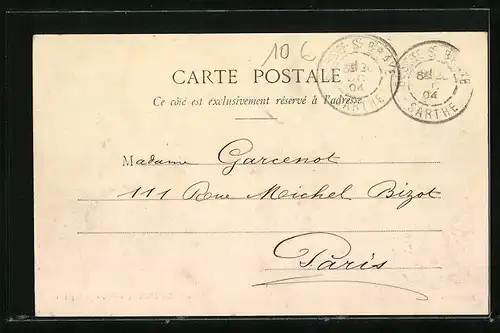 10 6
CARTE POSTALE
Ce côté est exclusivement réservé à l'adresse
SARTHE
04
SARTHE
04
Madame Garcenot
111 Rue Michel Bizot
Paris